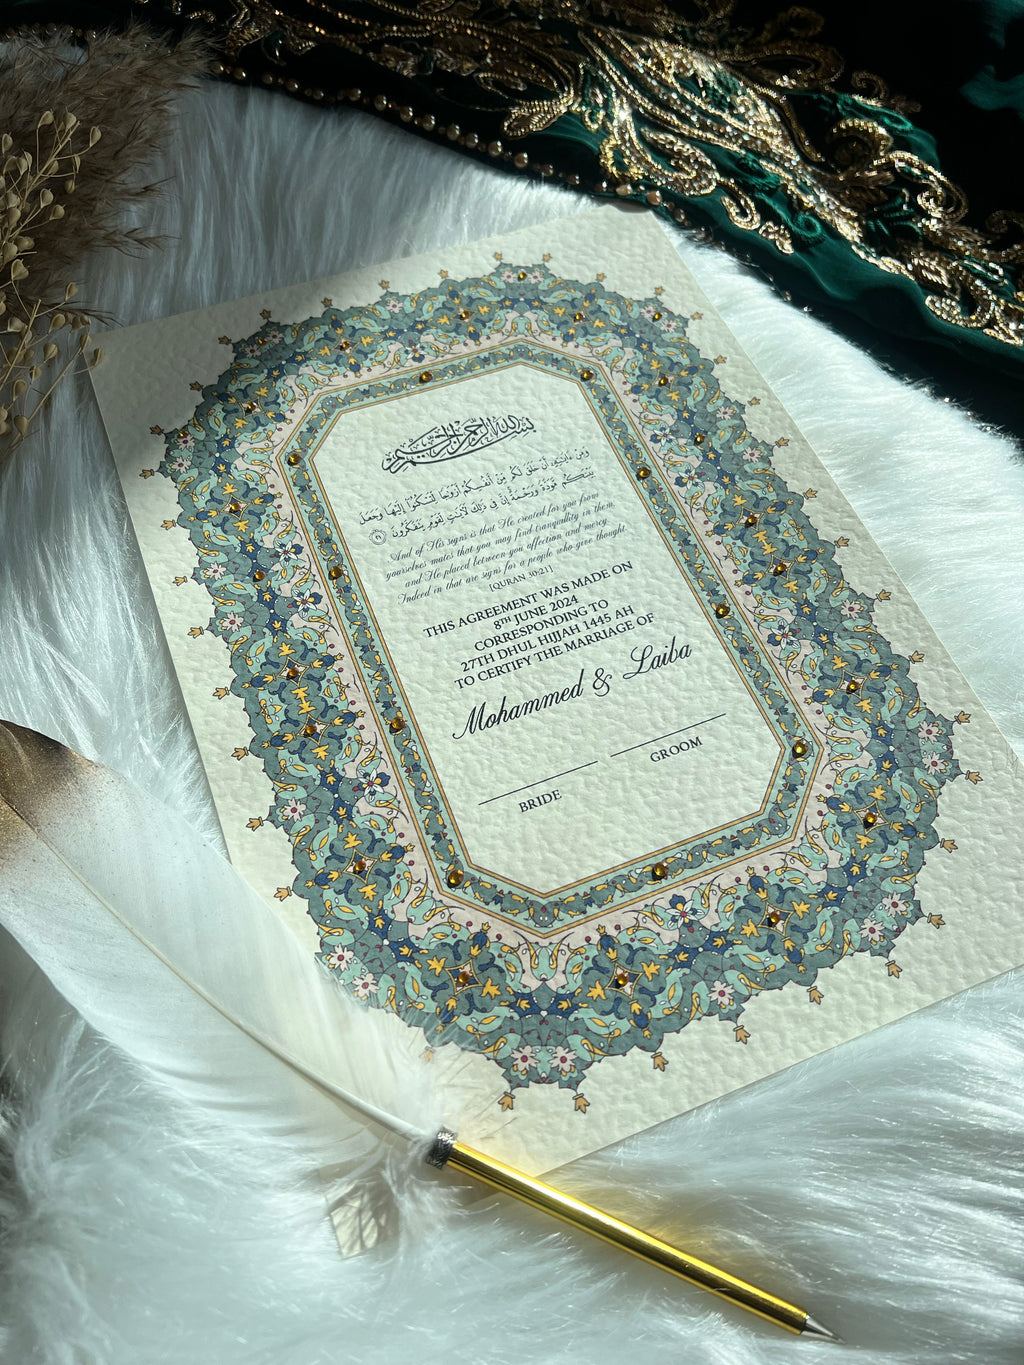 بسم الله الرحمن الرحيم
وَمِنْ ءَايَٰتِهِۦٓ أَنْ خَلَقَ لَكُم مِّنْ أَنفُسِكُمْ أَزْوَٰجًا لِّتَسْكُنُوٓا۟ إِلَيْهَا وَجَعَلَ
بَيْنَكُم مَّوَدَّةً وَرَحْمَةً إِنَّ فِى ذَٰلِكَ لَءَايَٰتٍ لِّقَوْمٍ يَتَفَكَّرُونَ ٢١
And of His signs is that He created for you from
yourselves mates that you may find tranquillity in them,
and He placed between you affection and mercy.
Indeed in that are signs for a people who give thought.
[QURAN 30:21]
THIS AGREEMENT WAS MADE ON
8TH JUNE 2024
CORRESPONDING TO
27TH DHUL HIJJAH 1445 AH
TO CERTIFY THE MARRIAGE OF
Mohammed & Laiba
BRIDE GROOM